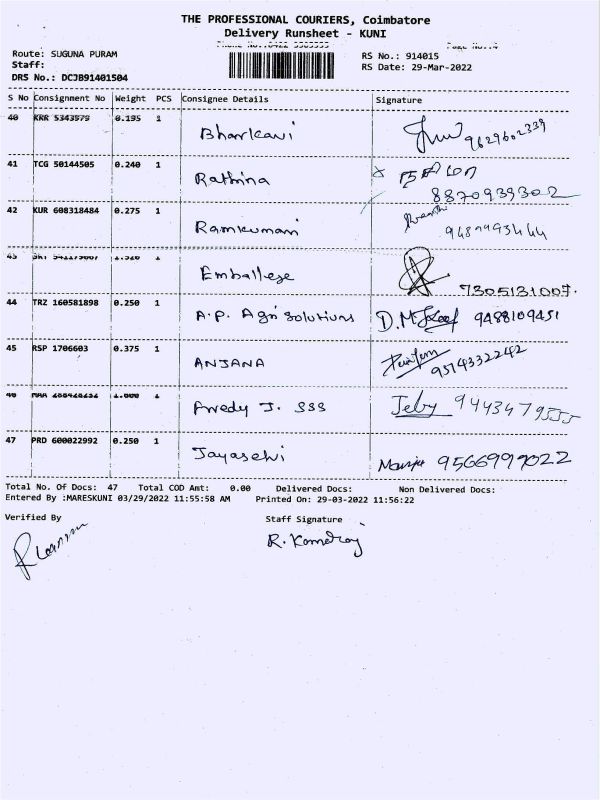 THE PROFESSIONAL COURIERS, Coimbatore
Delivery Runsheet - KUNI
Route: SUGUNA PURAM
Staff:
DRS No.: DCJB91401504
RS No.: 914015
RS Date: 29-Mar-2022
S No Consignment No Weight PCS Consignee Details Signature
40 KRR 5343579 0.195 1 Bharkavi 9629602339
41 TCG 50144505 0.240 1 Rathina 8870939302
42 KUR 608318484 0.275 1 Ramkumani
43 1 Emballege 7305131007.
44 TRZ 160581898 0.250 1 A.P. Agri Solutions D.M. 9488109451
45 RSP 1706603 0.375 1 ANJANA 9514332242
46 1 J. SSS Jeby
47 PRD 600022992 0.250 1 Jayaselvi 9566999022
Total No. Of Docs: 47 Total COD Amt: 0.00 Delivered Docs: Non Delivered Docs:
Entered By :MARESKUNI 03/29/2022 11:55:58 AM Printed On: 29-03-2022 11:56:22
Verified By Staff Signature
R. Kamaraj